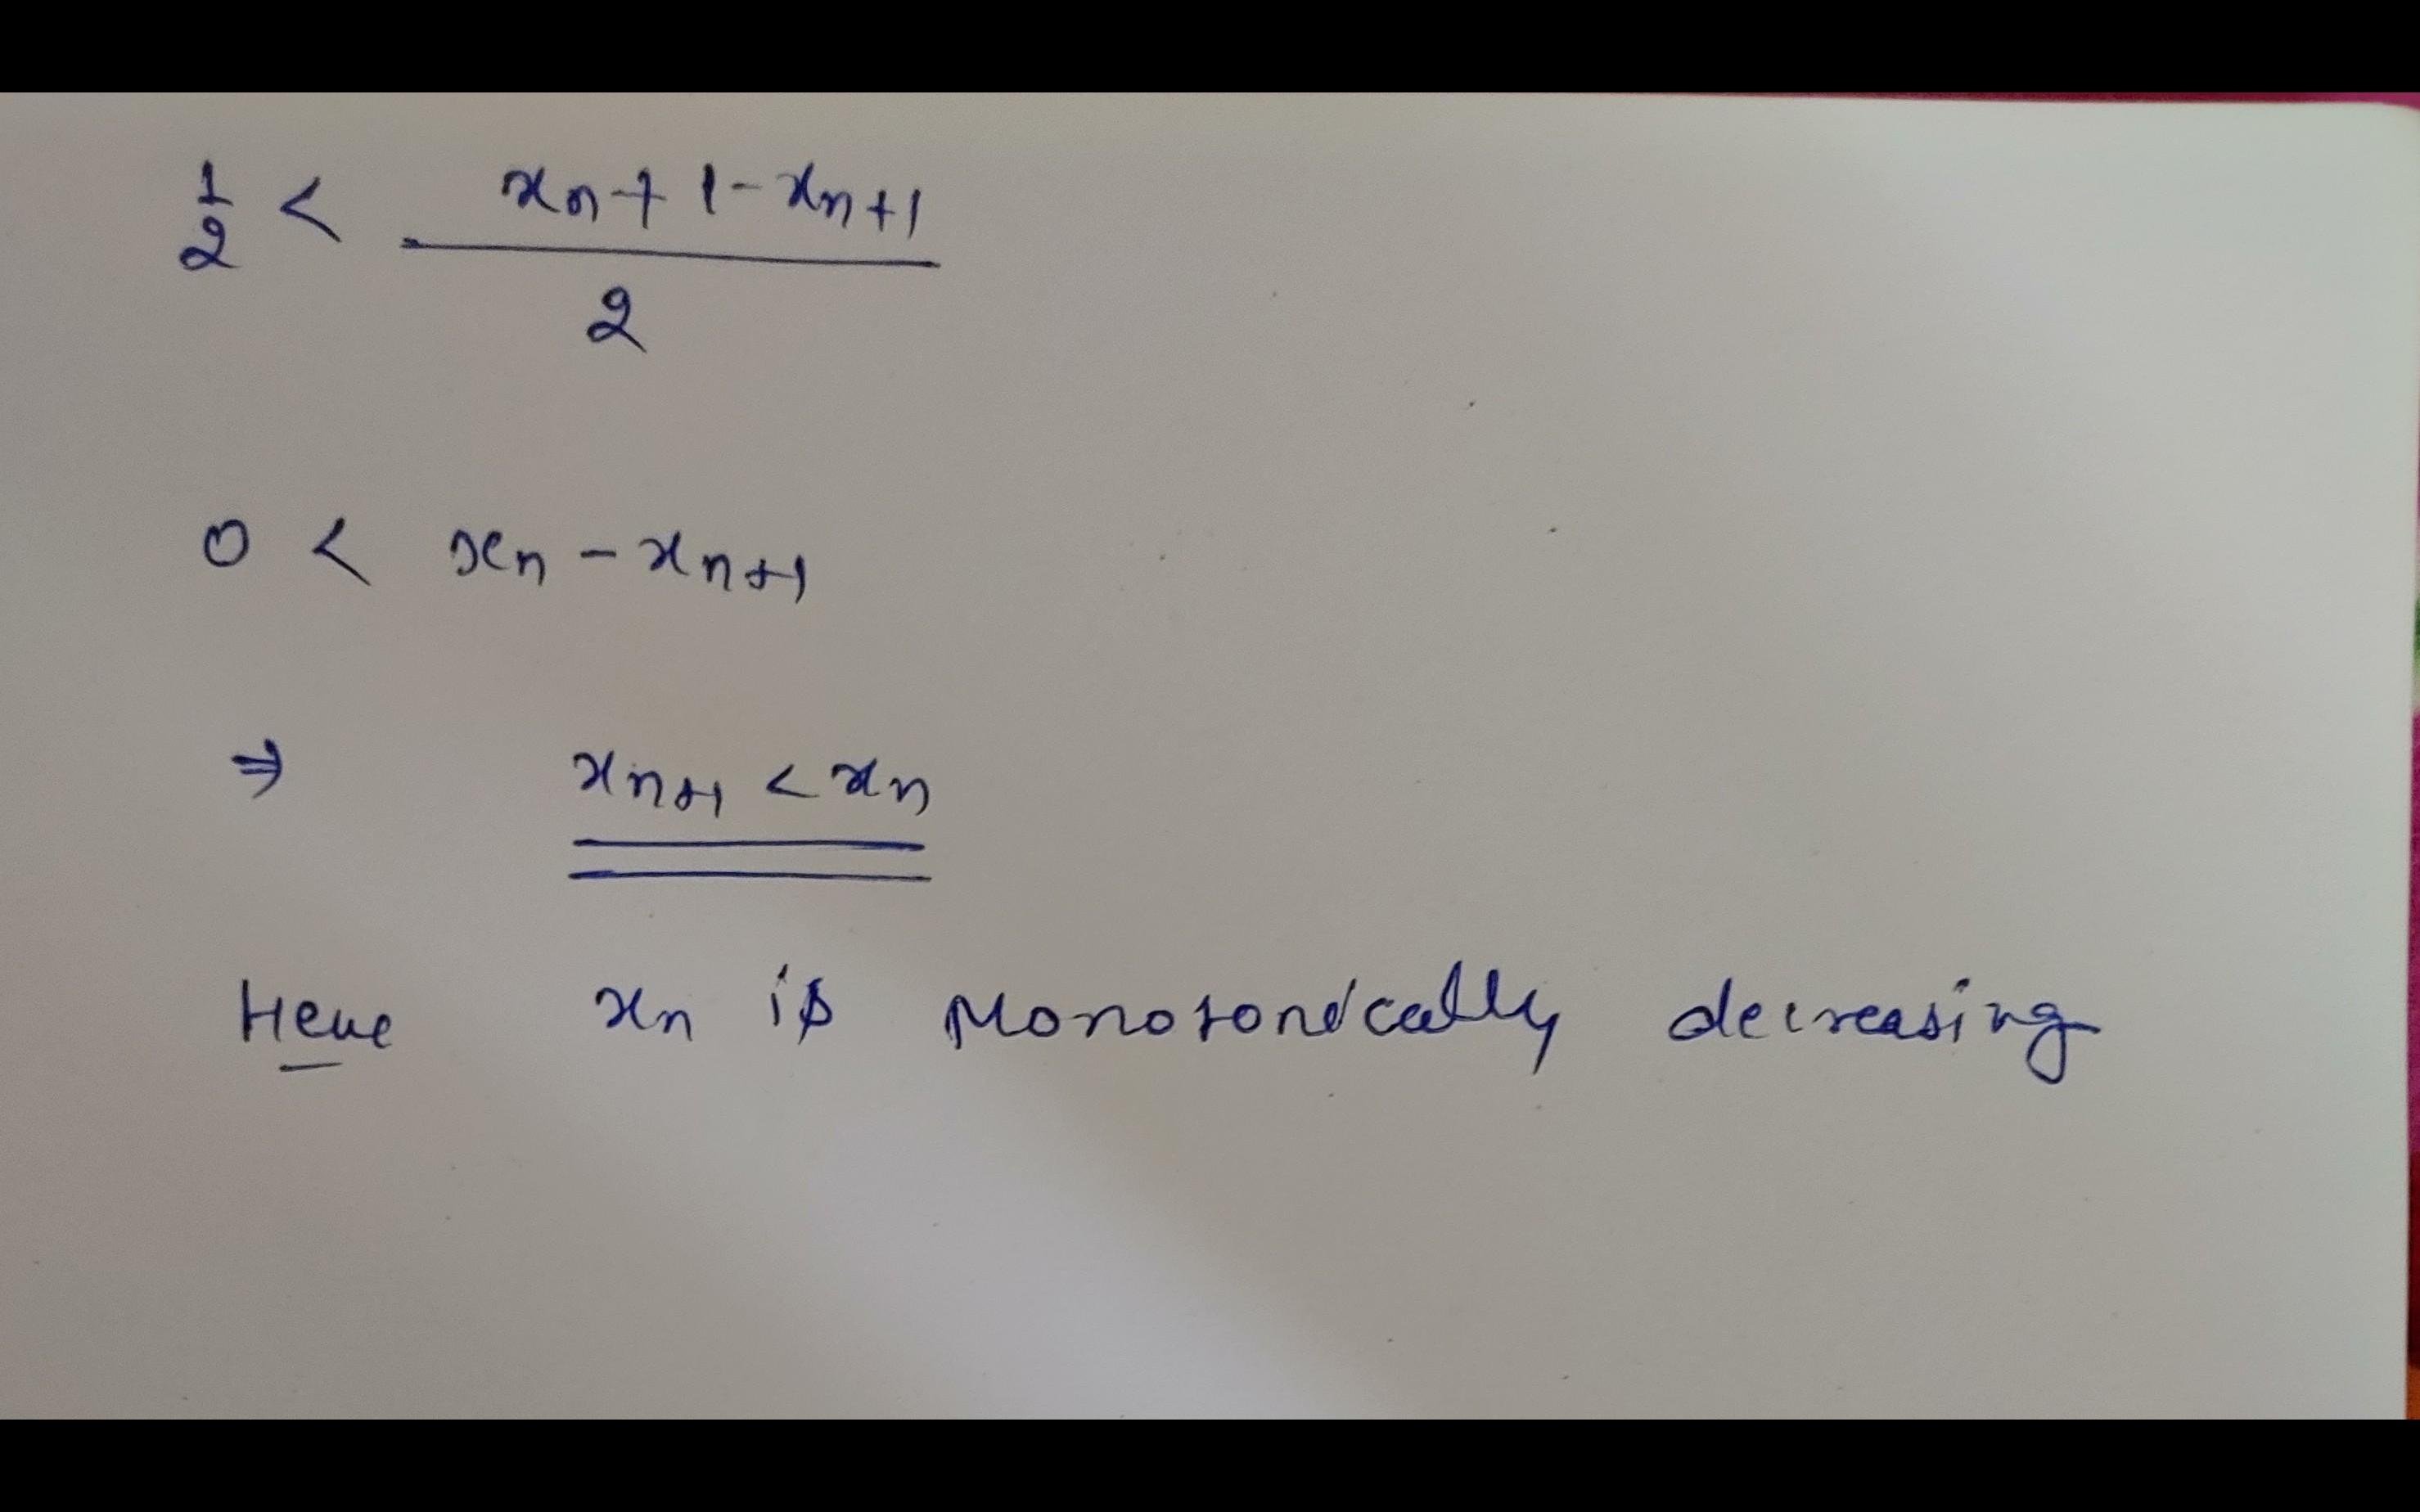 1/2 < (xₙ + 1 - xₙ₊₁)/2
0 < xₙ - xₙ₊₁
⇒ xₙ₊₁ < xₙ
Hence xₙ is Monotonically decreasing